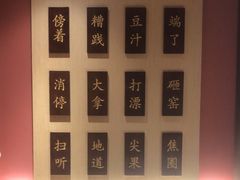 傍着 糟践 豆汁 端了
消停 大拿 打漂 砸窑
扫听 地道 尖果 焦圈